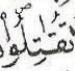 تُقَٰتِلُوا